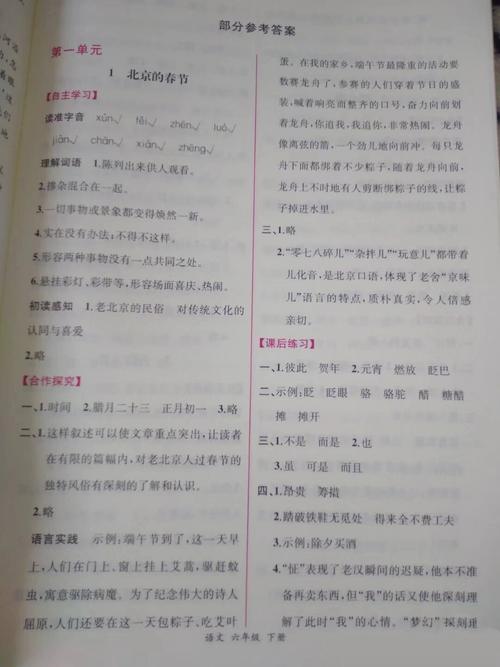 部分参考答案
第一单元
1 北京的春节
【自主学习】
读准字音 xún√ tēi√ zhēn√ luó√
jiǎn√ chān√ xiàn√ zhēng√
理解词语 1.陈列出来供人观看。
2.掺杂混合在一起。
3.一切事物或景象都变得焕然一新。
4.实在没有办法;不得不这样。
5.形容两种事物没有一点共同之处。
6.悬挂彩灯、彩带等,形容场面喜庆、热闹。
初读感知 1.老北京的民俗 对传统文化的
认同与喜爱
2.略
【合作探究】
一、1.时间 2.腊月二十三 正月初一 3.略
二、1.这样叙述可以使文章重点突出,让读者
在有限的篇幅内,对老北京人过春节的
独特风俗有深刻的了解和认识。
2.略
语言实践 示例:端午节到了,这一天早
上,人们在门上、窗上挂上艾蒿,驱赶蚊
虫,寓意驱除病魔。为了纪念伟大的诗人
屈原,人们还要在这一天包粽子、吃艾叶
蛋。在我的家乡,端午节最隆重的活动要
数赛龙舟了,参赛的人们穿着节日的盛
装,喊着响亮而整齐的口号,奋力向前划
着龙舟,你追我,我追你,非常热闹。龙舟
像离弦的箭,一个劲儿地向前冲。每只龙
舟下面都绑着不少粽子,随着龙舟向前,
龙舟上不时地有人剪断绑粽子的线,让粽
子掉进水里。
三、1.略
2.“零七八碎儿”“杂拌儿”“玩意儿”都带着
儿化音,是北京口语,体现了老舍“京味
儿”语言的特点,质朴真实,令人倍感
亲切。
【课后练习】
一、1.彼此 贺年 2.元宵 燃放 眨巴
二、示例:眨 眨眼 骆 骆驼 醋 糖醋
摊 摊开
三、1.不是 而是 2.也
3.虽 可是 而且
四、1.昂贵 筹措
2.踏破铁鞋无觅处 得来全不费工夫
3.示例:除夕买酒
4.“怔”表现了老汉瞬间的迟疑,他本不准
备再卖东西,但“我”的心情使他深刻理
解了此时“我”的心情。“梦幻”探刻
语文 六年级 下册